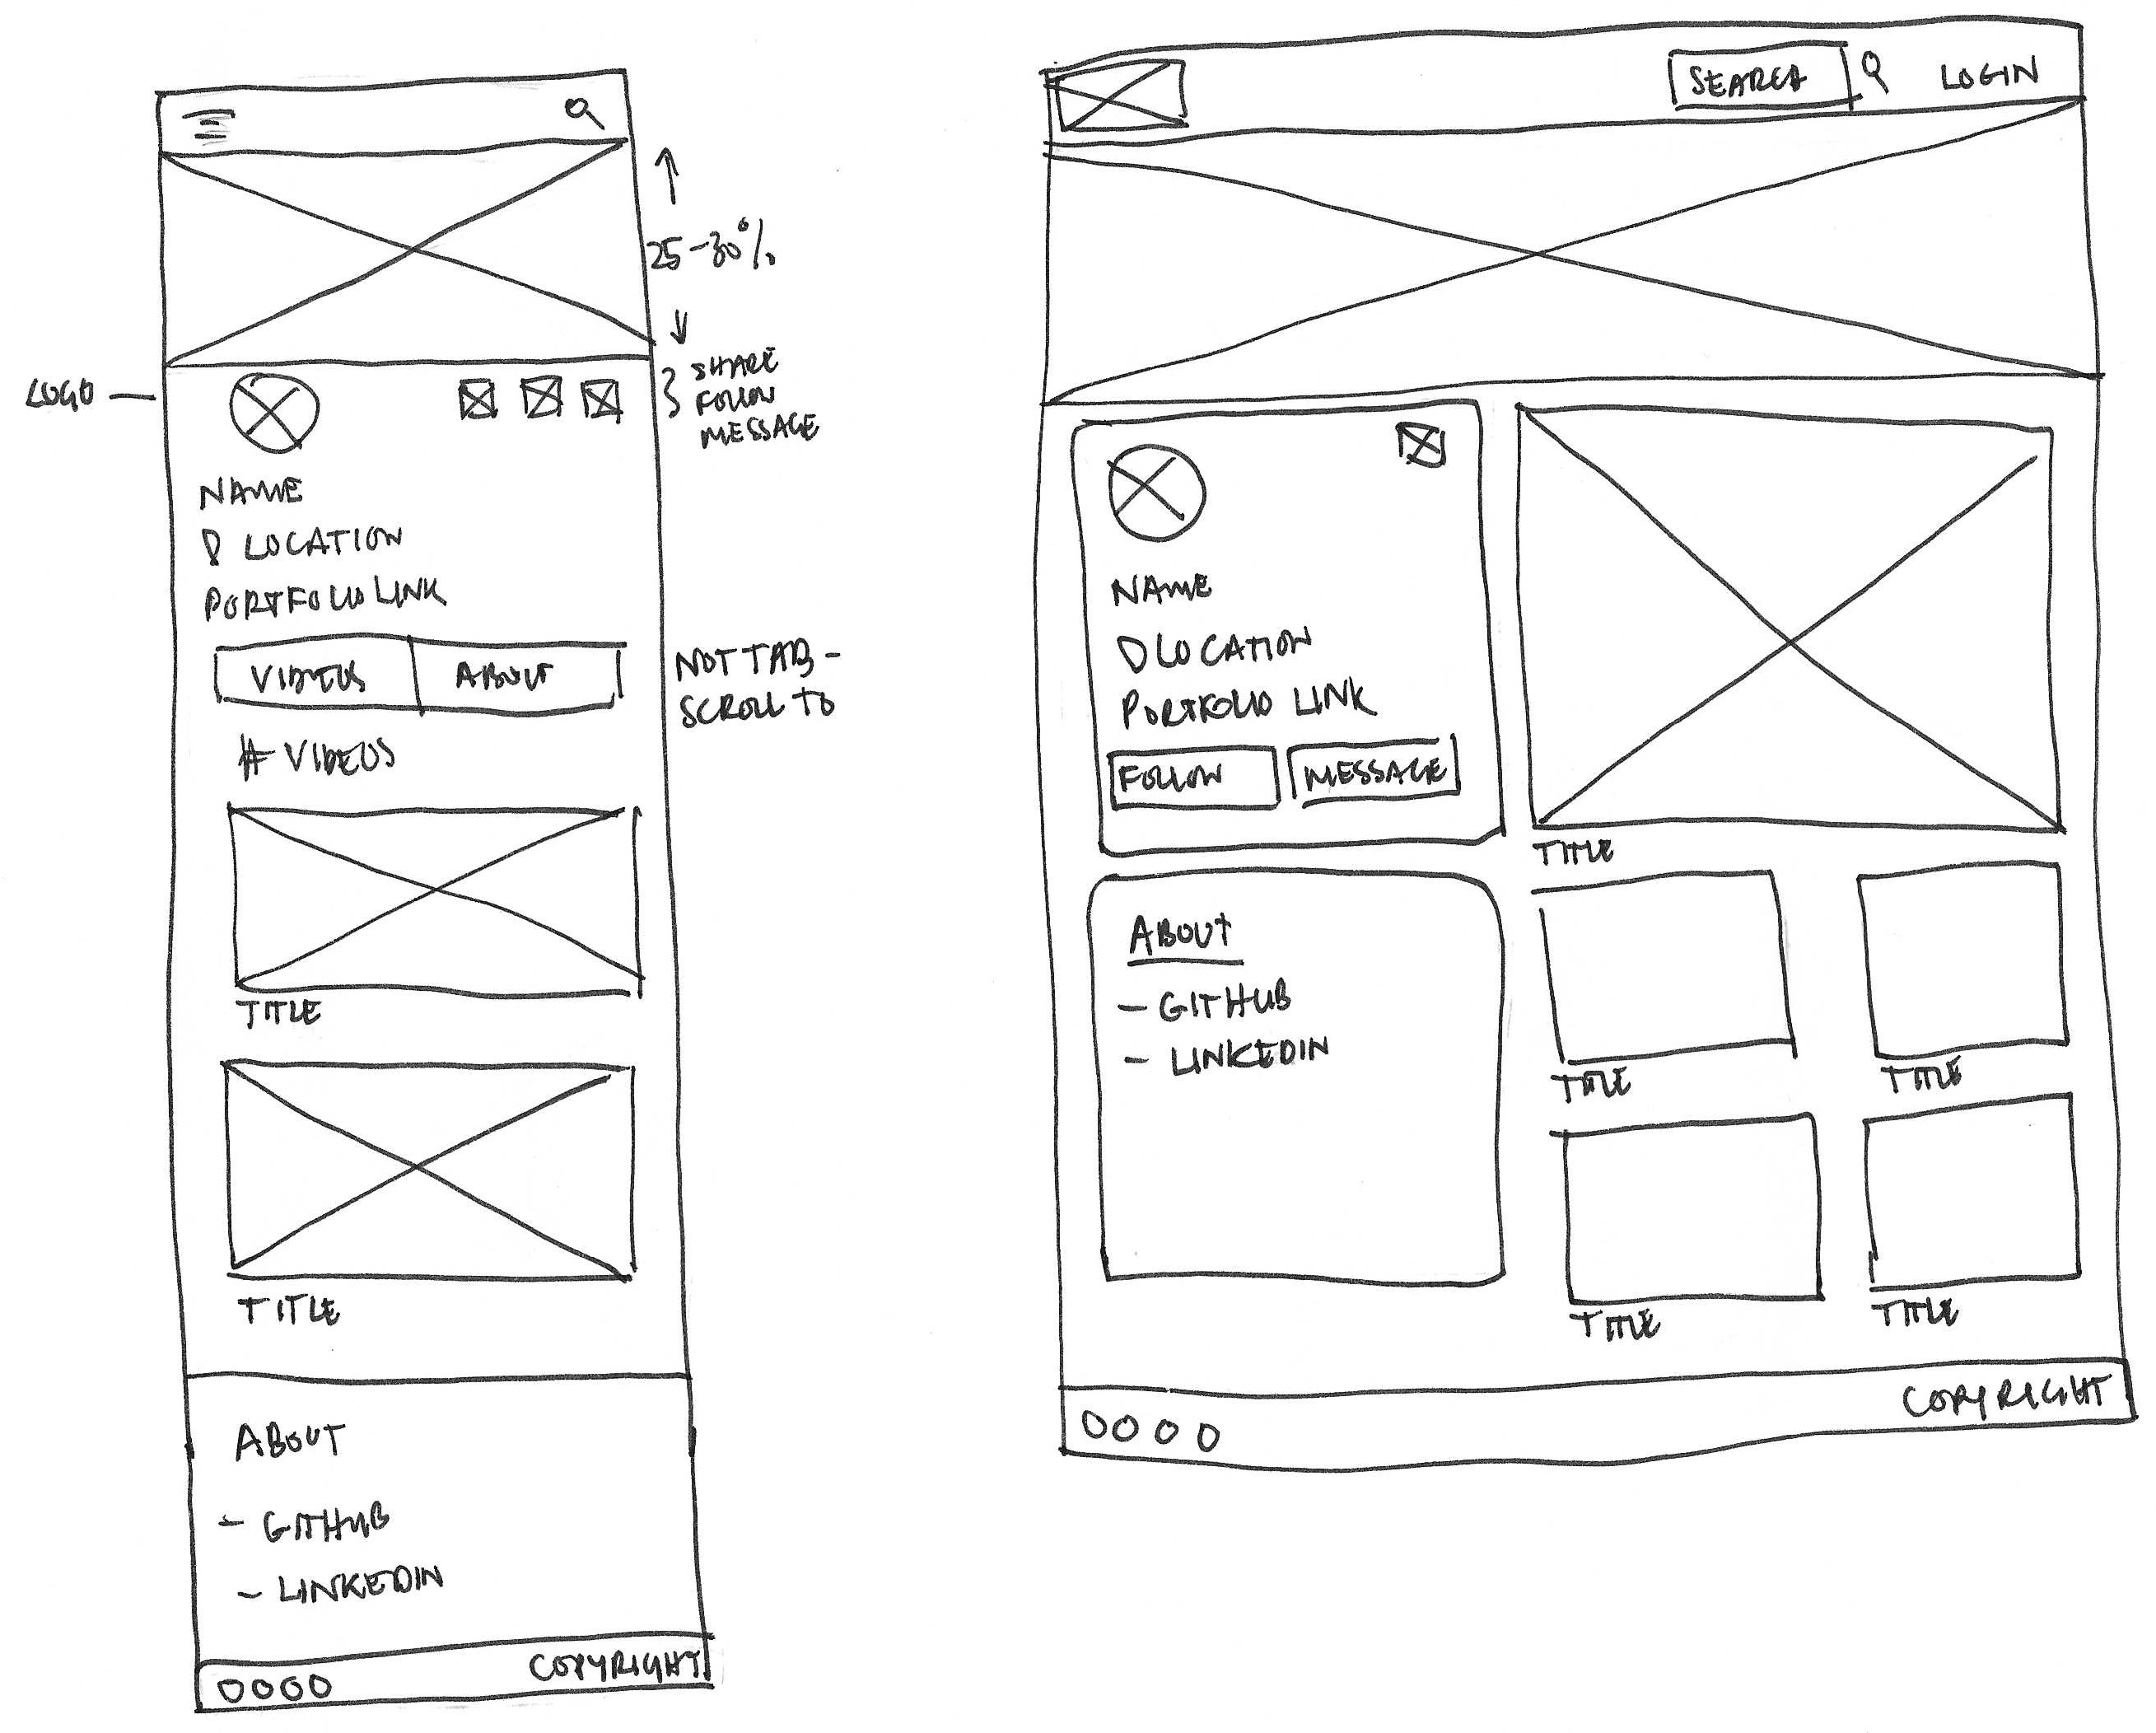 25-30%
LOGO
SHARE
FOLLOW
MESSAGE
NAME
LOCATION
PORTFOLIO LINK
VIDEOS
ABOUT
NOT TAB -
SCROLL TO
# VIDEOS
TITLE
TITLE
ABOUT
- GITHUB
- LINKEDIN
COPYRIGHT
SEARCH
LOGIN
NAME
LOCATION
PORTFOLIO LINK
FOLLOW
MESSAGE
TITLE
ABOUT
- GITHUB
- LINKEDIN
TITLE
TITLE
TITLE
TITLE
COPYRIGHT